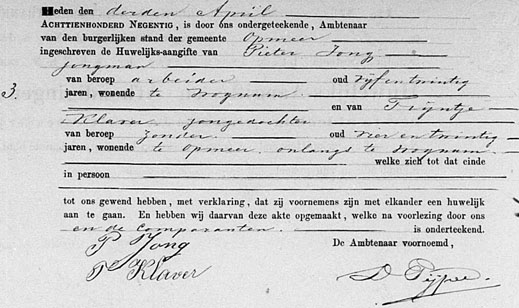 Heden den derden April
Achttienhonderd Negentig, is door ons ondergeteekende, Ambtenaar
van den burgerlijken stand der gemeente Opmeer
ingeschreven de Huwelijks-aangifte van Pieter Jong
jongman
van beroep arbeider oud vijfentwintig
3. jaren, wonende te Wognum
en van Trijntje
Klaver jongedochter
van beroep zonder oud vierentwintig
jaren, wonende te Opmeer onlangs te Wognum
welke zich tot dat einde
in persoon
tot ons gewend hebben, met verklaring, dat zij voornemens zijn met elkander een huwelijk
aan te gaan. En hebben wij daarvan deze akte opgemaakt, welke na voorlezing door ons
en de comparanten. is onderteekend.
P Jong De Ambtenaar voornoemd,
T Klaver